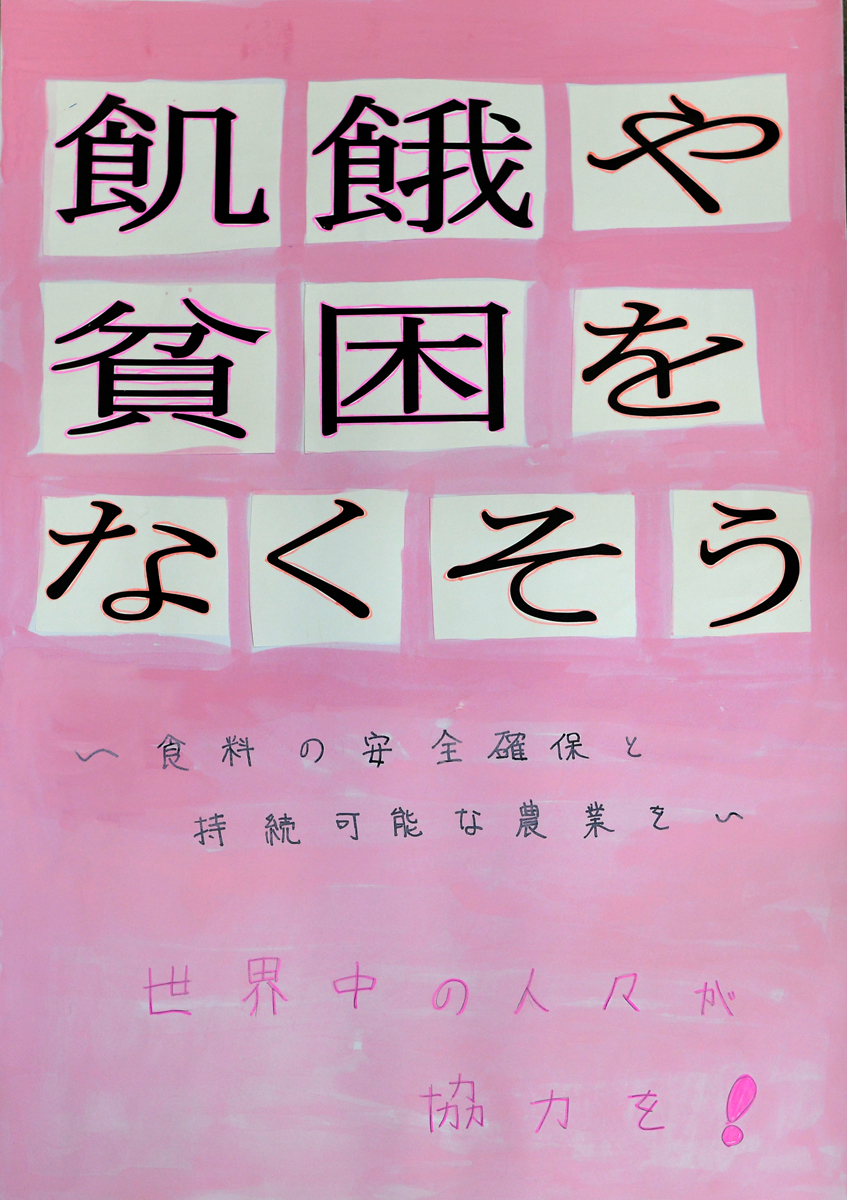 飢餓や
貧困を
なくそう
〜食料の安全確保と
持続可能な農業を〜
世界中の人々が
協力を!